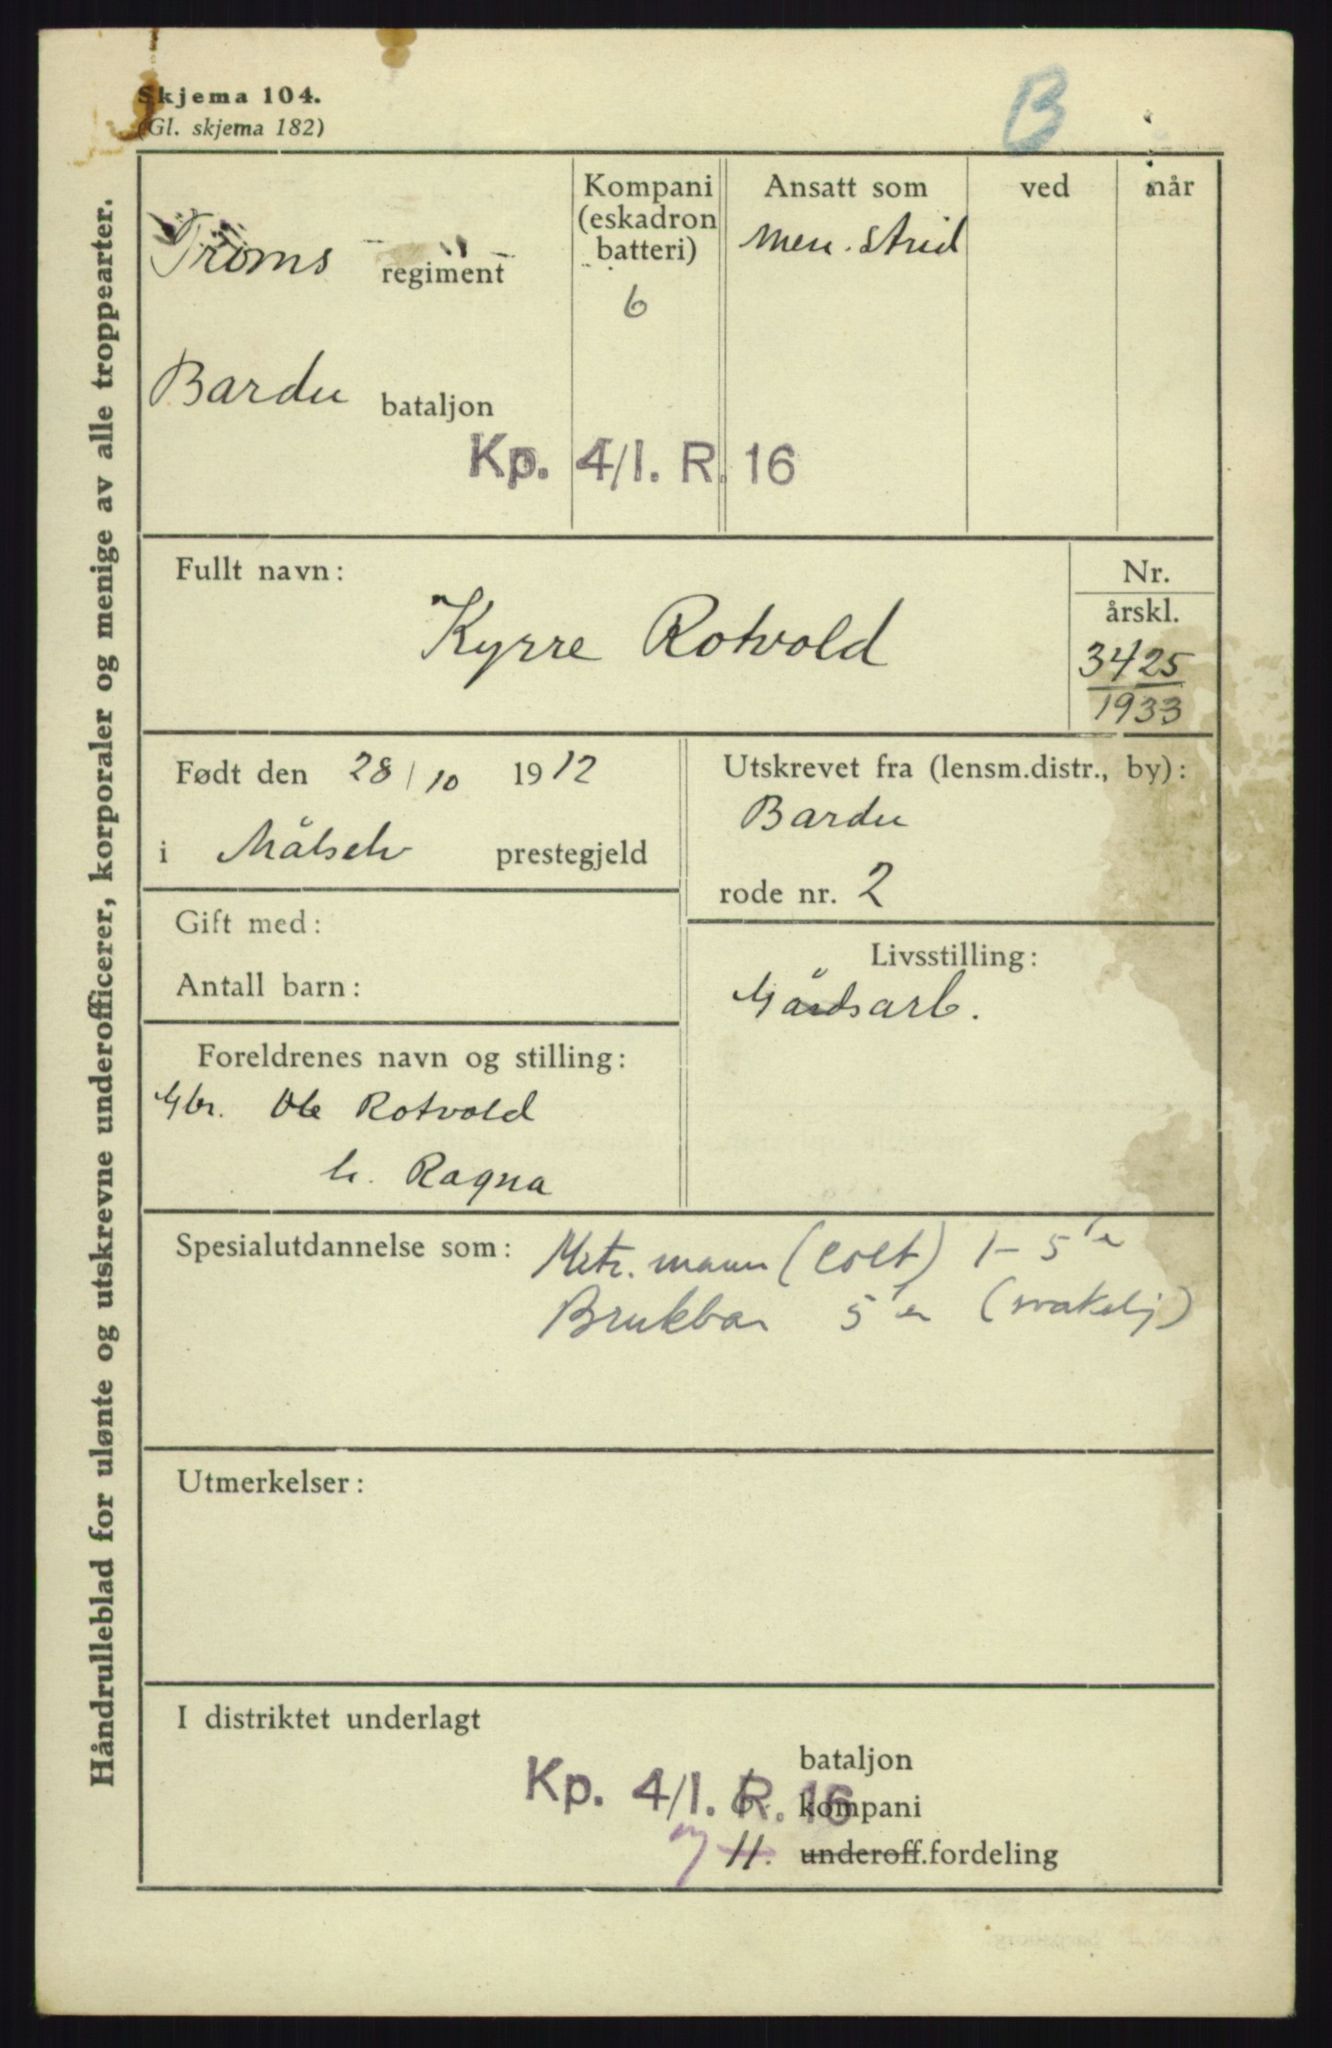 Skjema 104.
(Gl. skjema 182)
B
Håndrulleblad for ulønte og utskrevne underofficerer, korporaler og menige av alle troppearter.
Troms regiment
Kompani
(eskadron
batteri)
6
Ansatt som
men. strid
ved
når
Bardu bataljon
Kp. 4/I. R. 16
Fullt navn:
Kyrre Rotvold
Nr.
årskl.
3425
1933
Født den 28/10 1912
i Målselv prestegjeld
Utskrevet fra (lensm.distr., by):
Bardu
rode nr. 2
Gift med:
Antall barn:
Livsstilling:
Gårdsarb.
Foreldrenes navn og stilling:
Gbr. Ole Rotvold
h. Ragna
Spesialutdannelse som:
Mitr. mann (Colt) 1-5'er
Brukbar 5'er (svakelig)
Utmerkelser:
I distriktet underlagt
bataljon
Kp. 4/I. R. 16
kompani
11. underoff.fordeling